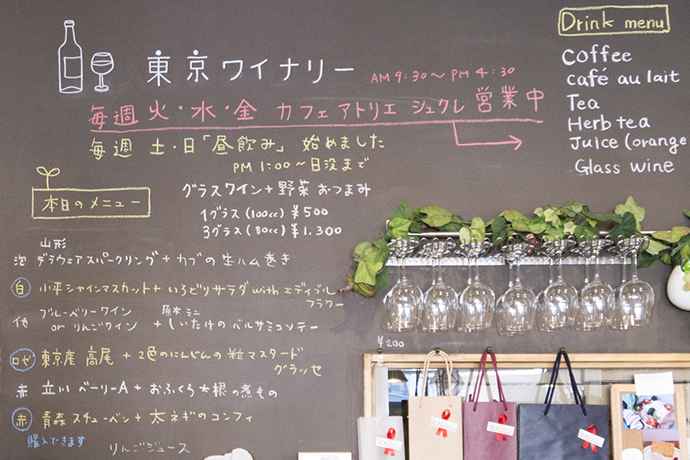 東京ワイナリー
AM 9:30〜PM 4:30
毎週 火・水・金 カフェアトリエ シュクレ 営業中
毎週 土・日「昼飲み」始めました
PM 1:00〜日没まで
グラスワイン+野菜おつまみ
1グラス(100cc) ¥500
3グラス(80cc) ¥1.300
本日のメニュー
山形
泡 デラウェアスパークリング+カブの生ハム巻き
白 小平シャインマスカット+いろどりサラダ with エディブル
フラワー
他 ブルーベリーワイン
or りんごワイン
+ 原木ミニ
しいたけのバルサミコソテー
ロゼ 東京産 高尾+2色のにんじんの粒マスタード
グラッセ
赤 立川 ベーリーA+おふくろ大根の煮もの
赤 青森スチューベン+太ネギのコンフィ
購入できます
りんごジュース
Drink menu
Coffee
Café au lait
Tea
Herb tea
Juice (orange
Glass wine
¥200